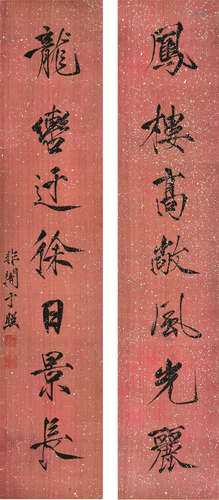 鳳樓高敞風光麗
龍轡迂徐日景長
非闇于照